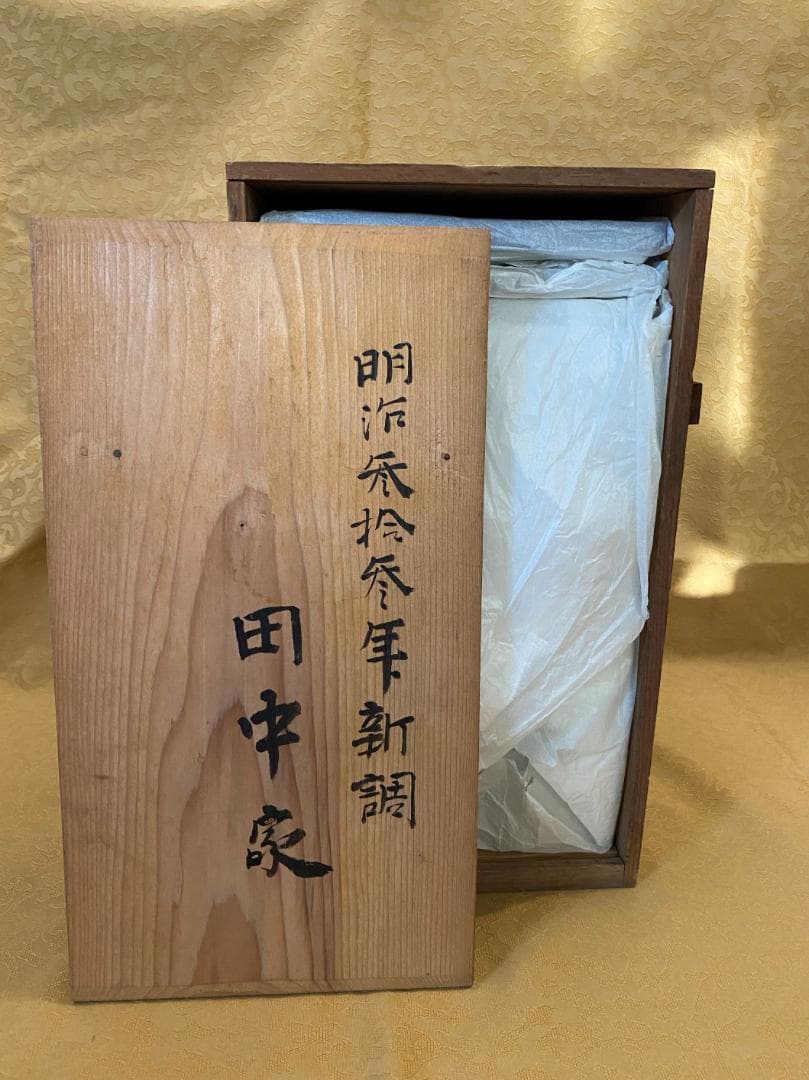 明治参拾参年新調
田中家